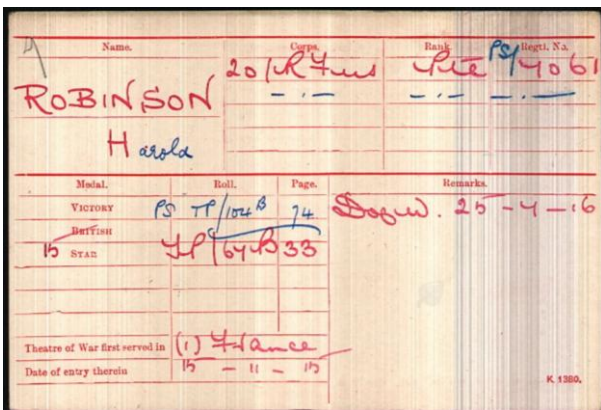 Name. Corps. Rank Regtl. No.
20/R Fus Pte PS/7061
ROBINSON — . — — . — — . —
Harold
Medal. Roll. Page. Remarks.
VICTORY PS TP/104 B 74 D of W. 25-4-16
BRITISH
15 STAR TP/67 B 33
Theatre of War first served in (1) France
Date of entry therein 15 - 11 - 15
K. 1380.